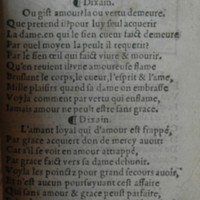 ¶ Dixain.
Ou gist amour? la ou vertu demeure.
Que pretend il? pour luy seul acquerir
La dame, en qui le sien cueur faict demeure
Par quel moyen la peult il requerir?
Par le sien cri qui faict vivre & mourir.
Qu'en revient il? une amoureuse flamme
Bruslant le corps, le coeur, l'esprit & l'ame,
Mille plaisirs quand sa dame on embrasse
Voyla comment par vertu qui enflame,
Iamais amour ne peult estre sans grace.
¶ Dixain.
L'amant loyal qui d'amour est frappé,
Par grace acquiert don de mercy avoir
Car s'il se voit en amour attrappé,
Par grace faict vers sa dame debuoir.
Voyla les poinctz pour grand secours avoir,
Et n'est aucun poursuyvant cest affaire
Qui sans amour & grace peust parfaire,